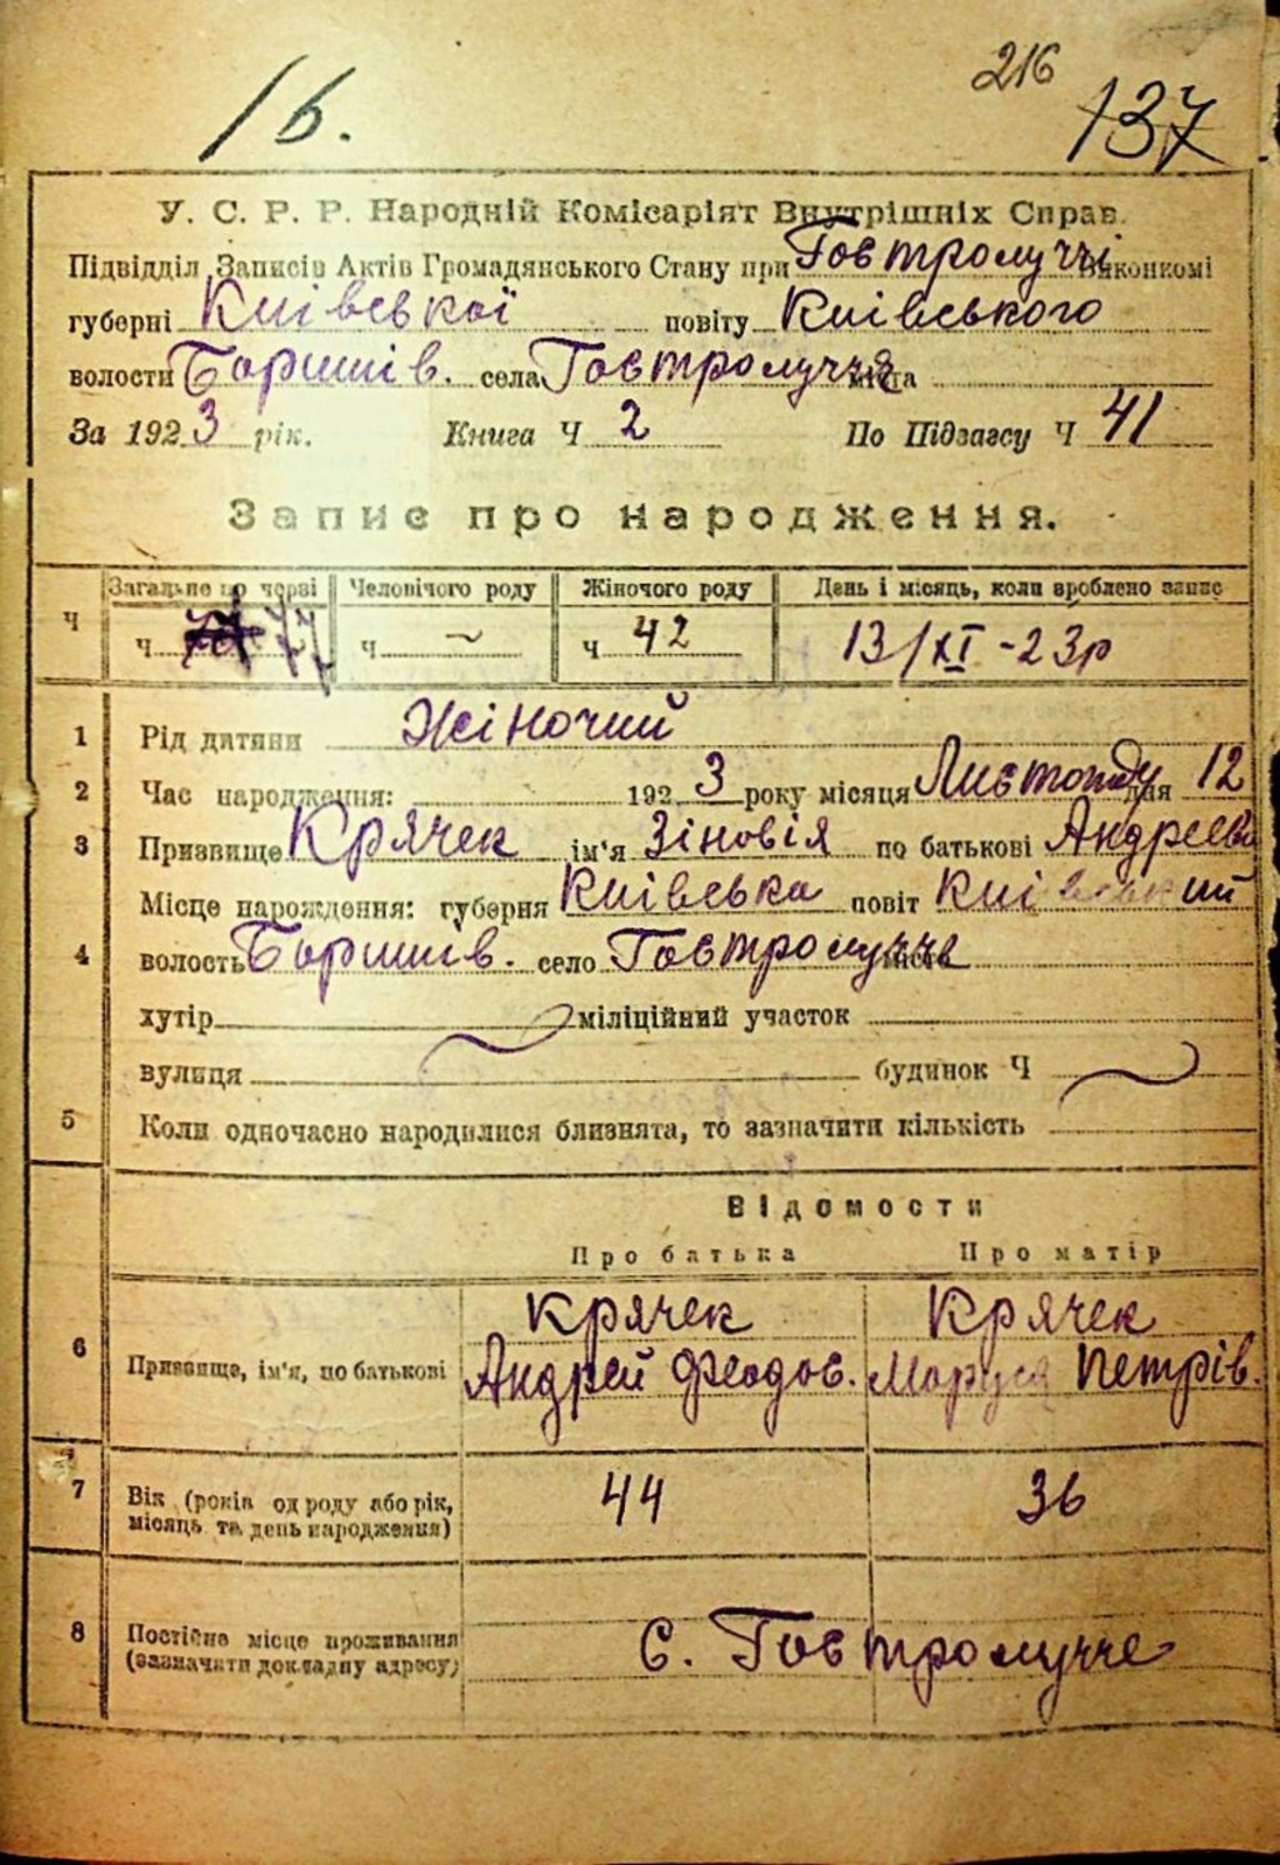 1б.
216
137
У. С. Р. Р. Народній Комісаріят Внутрішніх Справ.
Підвідділ Записів Актів Громадянського Стану при Гостролуччі виконкомі
губерні Київської повіту Київського
волости Баришів. села Гостролуччя міста
За 1923 рік. Книга Ч 2 По Підзагсу Ч 41
Запис про народження.
Ч Загальне по черзі Человічого роду Жіночого роду День і місяць, коли зроблено запис
ч 77 ч ~ ч 42 13/XI -23р
1 Рід дитяни Жіночий
2 Час народження: 1923 року місяця Листопаду дня 12
3 Призвище Крячек ім'я Зіновія по батькові Андреєв
Місце нарождення: губерня Київська повіт Київський
4 волость Баришів. село Гостролучче міста
хутір міліційний участок
вулиця будинок Ч
5 Коли одночасно народилися близнята, то зазначити кількість
Відомости
Про батька Про матір
Крячек Крячек
6 Призвище, ім'я, по батькові Андрей Феодос. Маруся Петрів.
7 Вік (років од роду або рік, 44 36
місяць та день народження)
8 Постійне місце проживання С. Гостролучче
(зазначити докладну адресу)